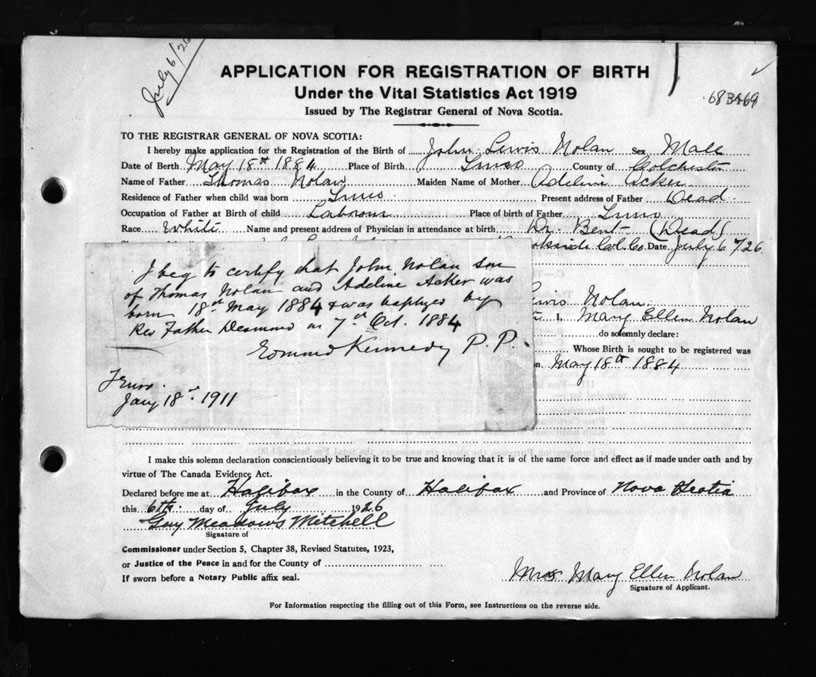 July 6/26
APPLICATION FOR REGISTRATION OF BIRTH
Under the Vital Statistics Act 1919
Issued by The Registrar General of Nova Scotia.
TO THE REGISTRAR GENERAL OF NOVA SCOTIA:
I hereby make application for the Registration of the Birth of John Lewis Nolan Sex Male
Date of Birth May 18th 1884 Place of Birth Truro County of Colchester
Name of Father Thomas Nolan Maiden Name of Mother Adeline Acker
Residence of Father when child was born Truro Present address of Father Dead
Occupation of Father at Birth of child Labourer Place of birth of Father Truro
Race White Name and present address of Physician in attendance at birth Dr. Bent (Dead)
Col. Co. Date July 6/26
I beg to certify that John Nolan son
of Thomas Nolan and Adeline Acker was
born 18th May 1884 & was baptized by
Rev Father Desmond on 7th Oct. 1884
Edmund Kennedy P. P.
Truro.
Jany 18th 1911
Lewis Nolan
I, Mary Ellen Nolan
do solemnly declare:
Whose Birth is sought to be registered was
on May 18th 1884
I make this solemn declaration conscientiously believing it to be true and knowing that it is of the same force and effect as if made under oath and by
virtue of The Canada Evidence Act.
Declared before me at Halifax in the County of Halifax and Province of Nova Scotia
this 6th day of July 1926
Guy Meadows Mitchell
Signature of
Commissioner under Section 5, Chapter 38, Revised Statutes, 1923,
or Justice of the Peace in and for the County of
If sworn before a Notary Public affix seal.
Mrs Mary Ellen Nolan
Signature of Applicant.
For Information respecting the filling out of this Form, see Instructions on the reverse side.